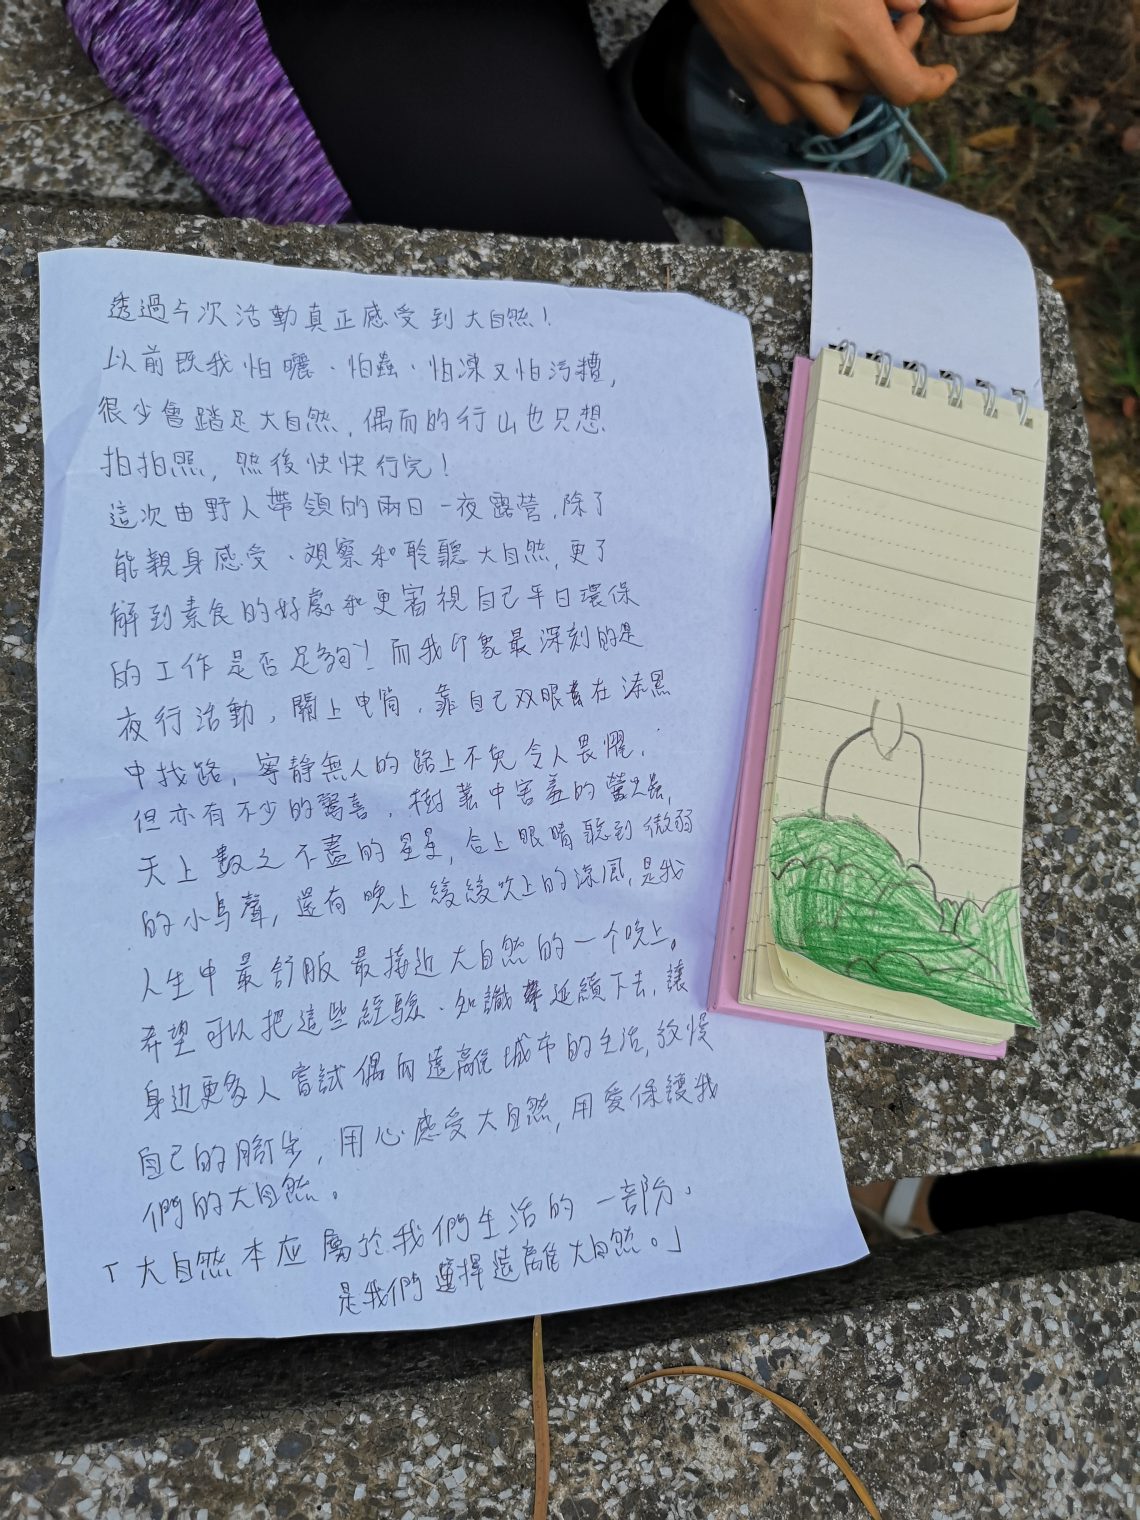 透過今次活動真正感受到大自然！
以前既我怕曬、怕蟲、怕凍又怕污糟，
很少會踏足大自然，偶而的行山也只想
拍拍照，然後快快行完！
這次由野人帶領的兩日一夜露營，除了
能親身感受、观察和聆聽大自然，更了
解到素食的好處和更審視自己平日環保
的工作是否足夠！而我印象最深刻的是
夜行活動，關上电筒，靠自己双眼在漆黑
中找路，寧靜無人的路上不免令人畏懼，
但亦有不少的驚喜，樹叢中害羞的螢火蟲，
天上數之不盡的星星，合上眼睛聽到微弱
的小鸟聲，還有晚上緩緩吹上的涼風，是我
人生中最舒服最接近大自然的一个晚上。
希望可以把這些經驗、知識延續下去，讓
身边更多人嘗試偶而遠離城市的生活，放慢
自己的腳步，用心感受大自然，用愛保護我
們的大自然。
「大自然本应屬於我們生活的一部份，
是我們選擇遠離大自然。」